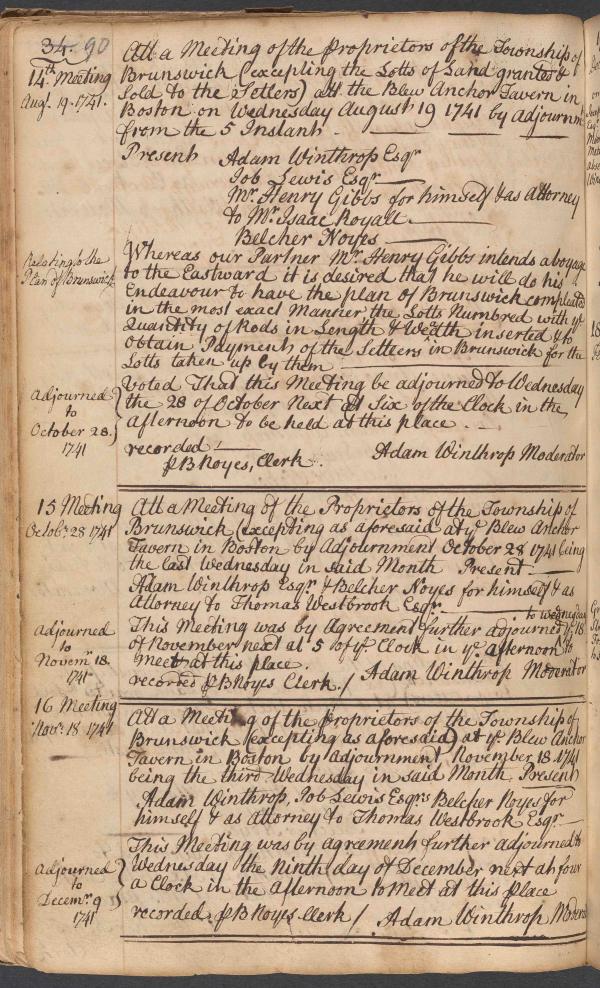 34. 90
14th Meeting
Augt. 19. 1741.
Att a Meeting of the Proprietors of the Township of
Brunswick (excepting the Lotts of Land granted &
Sold to the Settlers) att the Blew Anchor Tavern in
Boston on Wednesday August 19 1741 by adjournmt
from the 5 Instant.
Present Adam Winthrop Esqr
Job Lewis Esqr
Mr. Henry Gibbs for himself & as Attorney
to Mr. Isaac Royall
Belcher Noyes
Relating to the
Plan of Brunswick
Whereas our Partner Mr. Henry Gibbs intends a boyage
to the Eastward it is desired that he will do his
Endeavour to have the plan of Brunswick compleated
in the most exact Manner, the Lotts Numbred with ye
Quantity of Rods in Length & Wedth inserted & to
obtain Payment of the Settlers in Brunswick for the
Lotts taken up by them
Adjourned
to
October 28.
1741
Voted That this Meeting be adjourned to Wednesday
the 28 of October Next at Six of the Clock in the
afternoon to be held at this place.
recorded
p B Noyes, Clerk. Adam Winthrop Moderator
15 Meeting
Octobr. 28 1741
Att a Meeting of the Proprietors of the Township of
Brunswick (excepting as aforesaid at ye Blew Anchor
Tavern in Boston by Adjournment October 28 1741 being
the last Wednesday in said Month Present
Adam Winthrop Esqr. & Belcher Noyes for himself & as
Attorney to Thomas Westbrook Esqr.
Adjourned
to
Novemr. 18.
1741
to wednesday
This Meeting was by Agreement further adjourned ye 18
of November next at 5 of ye Clock in ye afternoon to
meet at this place.
recorded p B Noyes Clerk / Adam Winthrop Moderator
16 Meeting
Novr. 18 1741
Att a Meeting of the Proprietors of the Township of
Brunswick (excepting as aforesaid) at ye Blew Anchor
Tavern in Boston by adjournment November 18. 1741
being the third Wednesday in said Month Present
Adam Winthrop, Job Lewis Esqrs Belcher Noyes for
himself & as Attorney to Thomas Westbrook Esqr.
Adjourned
to
Decemr. 9
1741
This Meeting was by agreement further adjourned to
Wednesday the Ninth day of December next at four
a Clock in the Afternoon to Meet at this place
recorded. p B Noyes Clerk / Adam Winthrop Modera